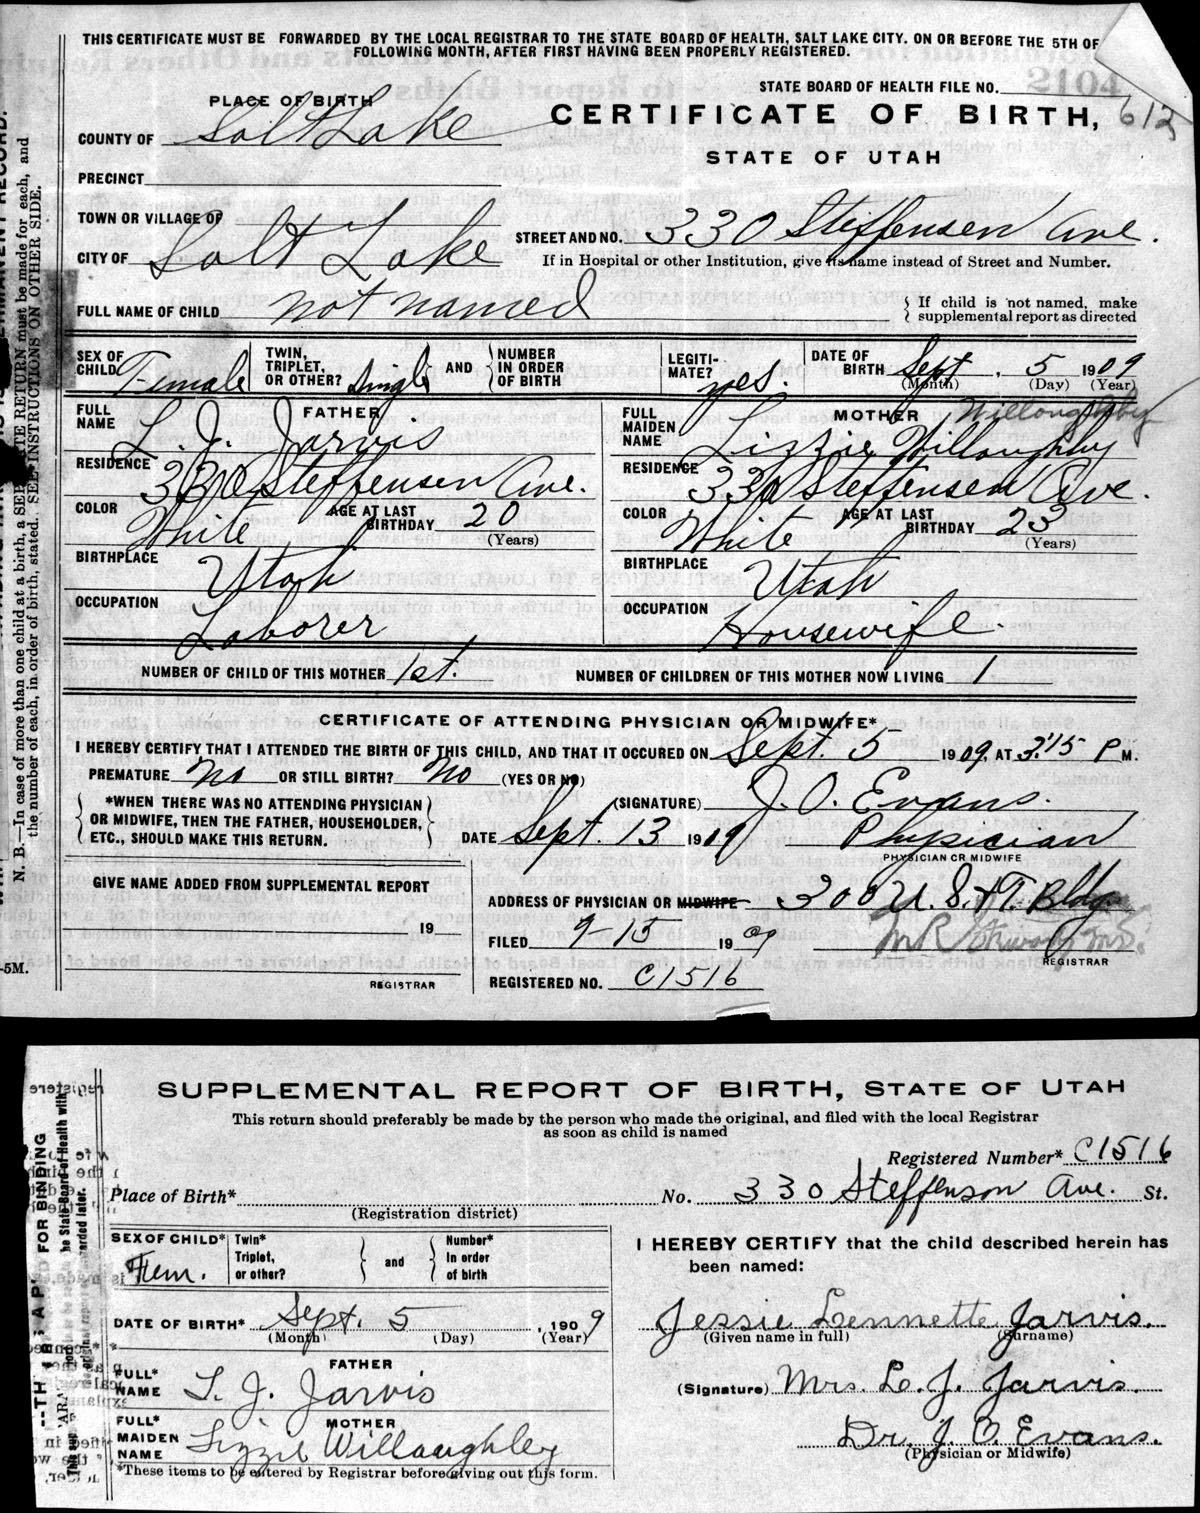 THIS CERTIFICATE MUST BE FORWARDED BY THE LOCAL REGISTRAR TO THE STATE BOARD OF HEALTH, SALT LAKE CITY. ON OR BEFORE THE 5TH OF
FOLLOWING MONTH, AFTER FIRST HAVING BEEN PROPERLY REGISTERED.
STATE BOARD OF HEALTH FILE NO.
PLACE OF BIRTH
CERTIFICATE OF BIRTH, 612
COUNTY OF Salt Lake
STATE OF UTAH
PRECINCT
TOWN OR VILLAGE OF
STREET AND NO. 330 Steffensen Ave.
CITY OF Salt Lake
If in Hospital or other Institution, give its name instead of Street and Number.
FULL NAME OF CHILD not named
If child is not named, make
supplemental report as directed
SEX OF CHILD Female
TWIN, TRIPLET, OR OTHER? Single AND NUMBER IN ORDER OF BIRTH
LEGITIMATE? yes.
DATE OF BIRTH Sept, 5 1909
(Month) (Day) (Year)
FATHER
FULL NAME L. J. Jarvis
RESIDENCE 330 Steffensen Ave.
COLOR White AGE AT LAST BIRTHDAY 20
(Years)
BIRTHPLACE Utah
OCCUPATION Laborer
MOTHER Willoughby
FULL MAIDEN NAME Lizzie Willoughby
RESIDENCE 330 Steffensen Ave.
COLOR White AGE AT LAST BIRTHDAY 23
(Years)
BIRTHPLACE Utah
OCCUPATION Housewife.
NUMBER OF CHILD OF THIS MOTHER 1st. NUMBER OF CHILDREN OF THIS MOTHER NOW LIVING 1
CERTIFICATE OF ATTENDING PHYSICIAN OR MIDWIFE*
I HEREBY CERTIFY THAT I ATTENDED THE BIRTH OF THIS CHILD, AND THAT IT OCCURED ON Sept. 5 1909, AT 3:15 P M.
PREMATURE No OR STILL BIRTH? No (YES OR NO)
*WHEN THERE WAS NO ATTENDING PHYSICIAN
OR MIDWIFE, THEN THE FATHER, HOUSEHOLDER,
ETC., SHOULD MAKE THIS RETURN.
(SIGNATURE) J. O. Evans.
DATE Sept. 13 1909 Physician
PHYSICIAN OR MIDWIFE
GIVE NAME ADDED FROM SUPPLEMENTAL REPORT
19
REGISTRAR
ADDRESS OF PHYSICIAN OR MIDWIFE 300 U. S. & T. Bldg.
FILED 9-15 1909
REGISTRAR
REGISTERED NO. C1516
N. B.—In case of more than one child at a birth, a SEPARATE RETURN must be made for each, and
the number of each, in order of birth, stated. SEE INSTRUCTIONS ON OTHER SIDE.
-5M.
SUPPLEMENTAL REPORT OF BIRTH, STATE OF UTAH
This return should preferably be made by the person who made the original, and filed with the local Registrar
as soon as child is named
Registered Number* C1516
Place of Birth* No. 330 Steffenson Ave. St.
(Registration district)
SEX OF CHILD* Fem.
Twin* Triplet, or other? and Number* In order of birth
DATE OF BIRTH* Sept. 5, 1909
(Month) (Day) (Year)
FATHER
FULL* NAME L. J. Jarvis
MOTHER
FULL* MAIDEN NAME Lizzie Willaughley
*These items to be entered by Registrar before giving out this form.
I HEREBY CERTIFY that the child described herein has
been named:
Jessie Lennette Jarvis.
(Given name in full) (Surname)
(Signature) Mrs. L. J. Jarvis.
Dr. J. O. Evans.
(Physician or Midwife)